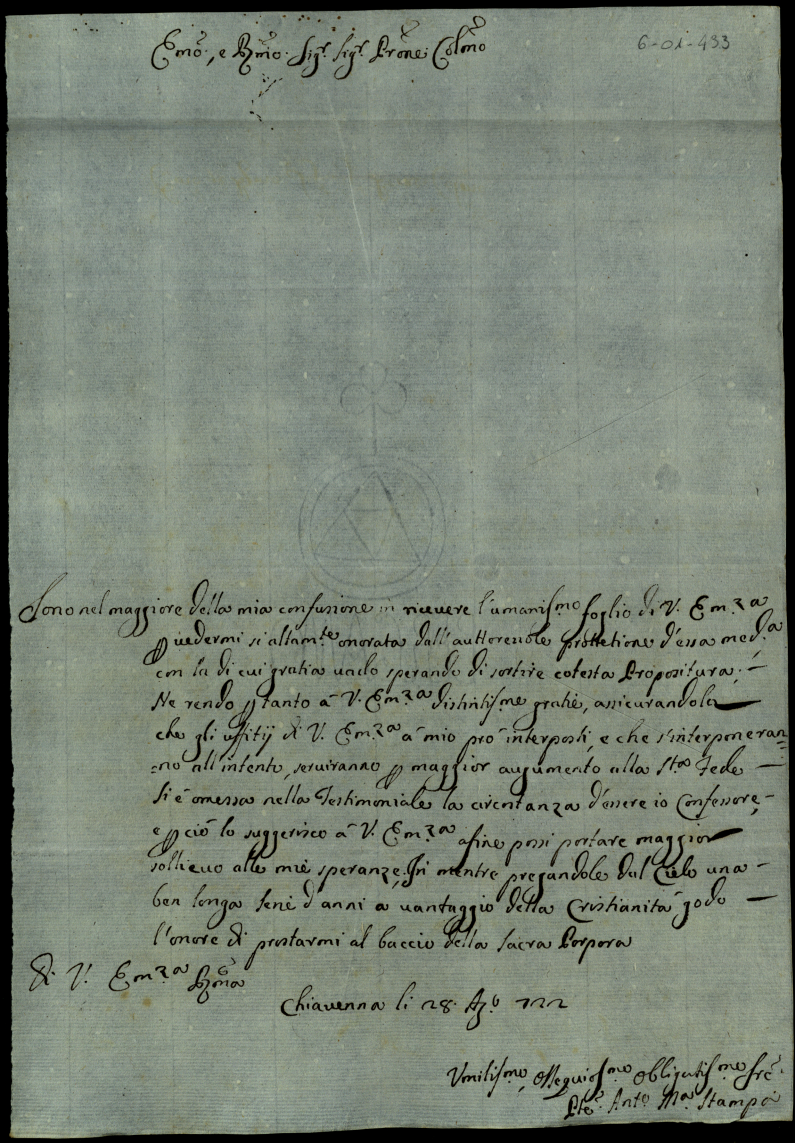 6-01-433
Emo., e Rmo. Sigr. Sigr. Prone Colmo
Sono nel maggiore della mia confusione in riceuere l'umanismo foglio di V. Emza
p uedermi si altamte onorata dall'auttoreuole prottetione d'essa meda
con la di cui gratia uado sperando di sortire cotesta Propositura;
Ne rendo p tanto à V. Emza distintisme gratie, assicurandola
che gli uffitij di V. Emza à mio prò interposti, e che s'interponeran=
=no all'intento, seruiranno p maggior augumento alla Sta Fede
Si è omessa nella Testimoniale la circontanza d'essere io Confessore,
e p ciò lo suggerisco à V. Emza afine possi portare maggior
sollieuo alle mie speranze. In mentre pregandole dal Cielo una
ben longa serie d'anni a uantaggio della Cristianità godo
l'onore di prostarmi al baccio della Sacra Porpora
Di V. Emza Rma
Chiauenna li 28. Agto 722
Vmilismo, Ossequiosmo Obligatismo Sre
Pte Anto Ma Stampa